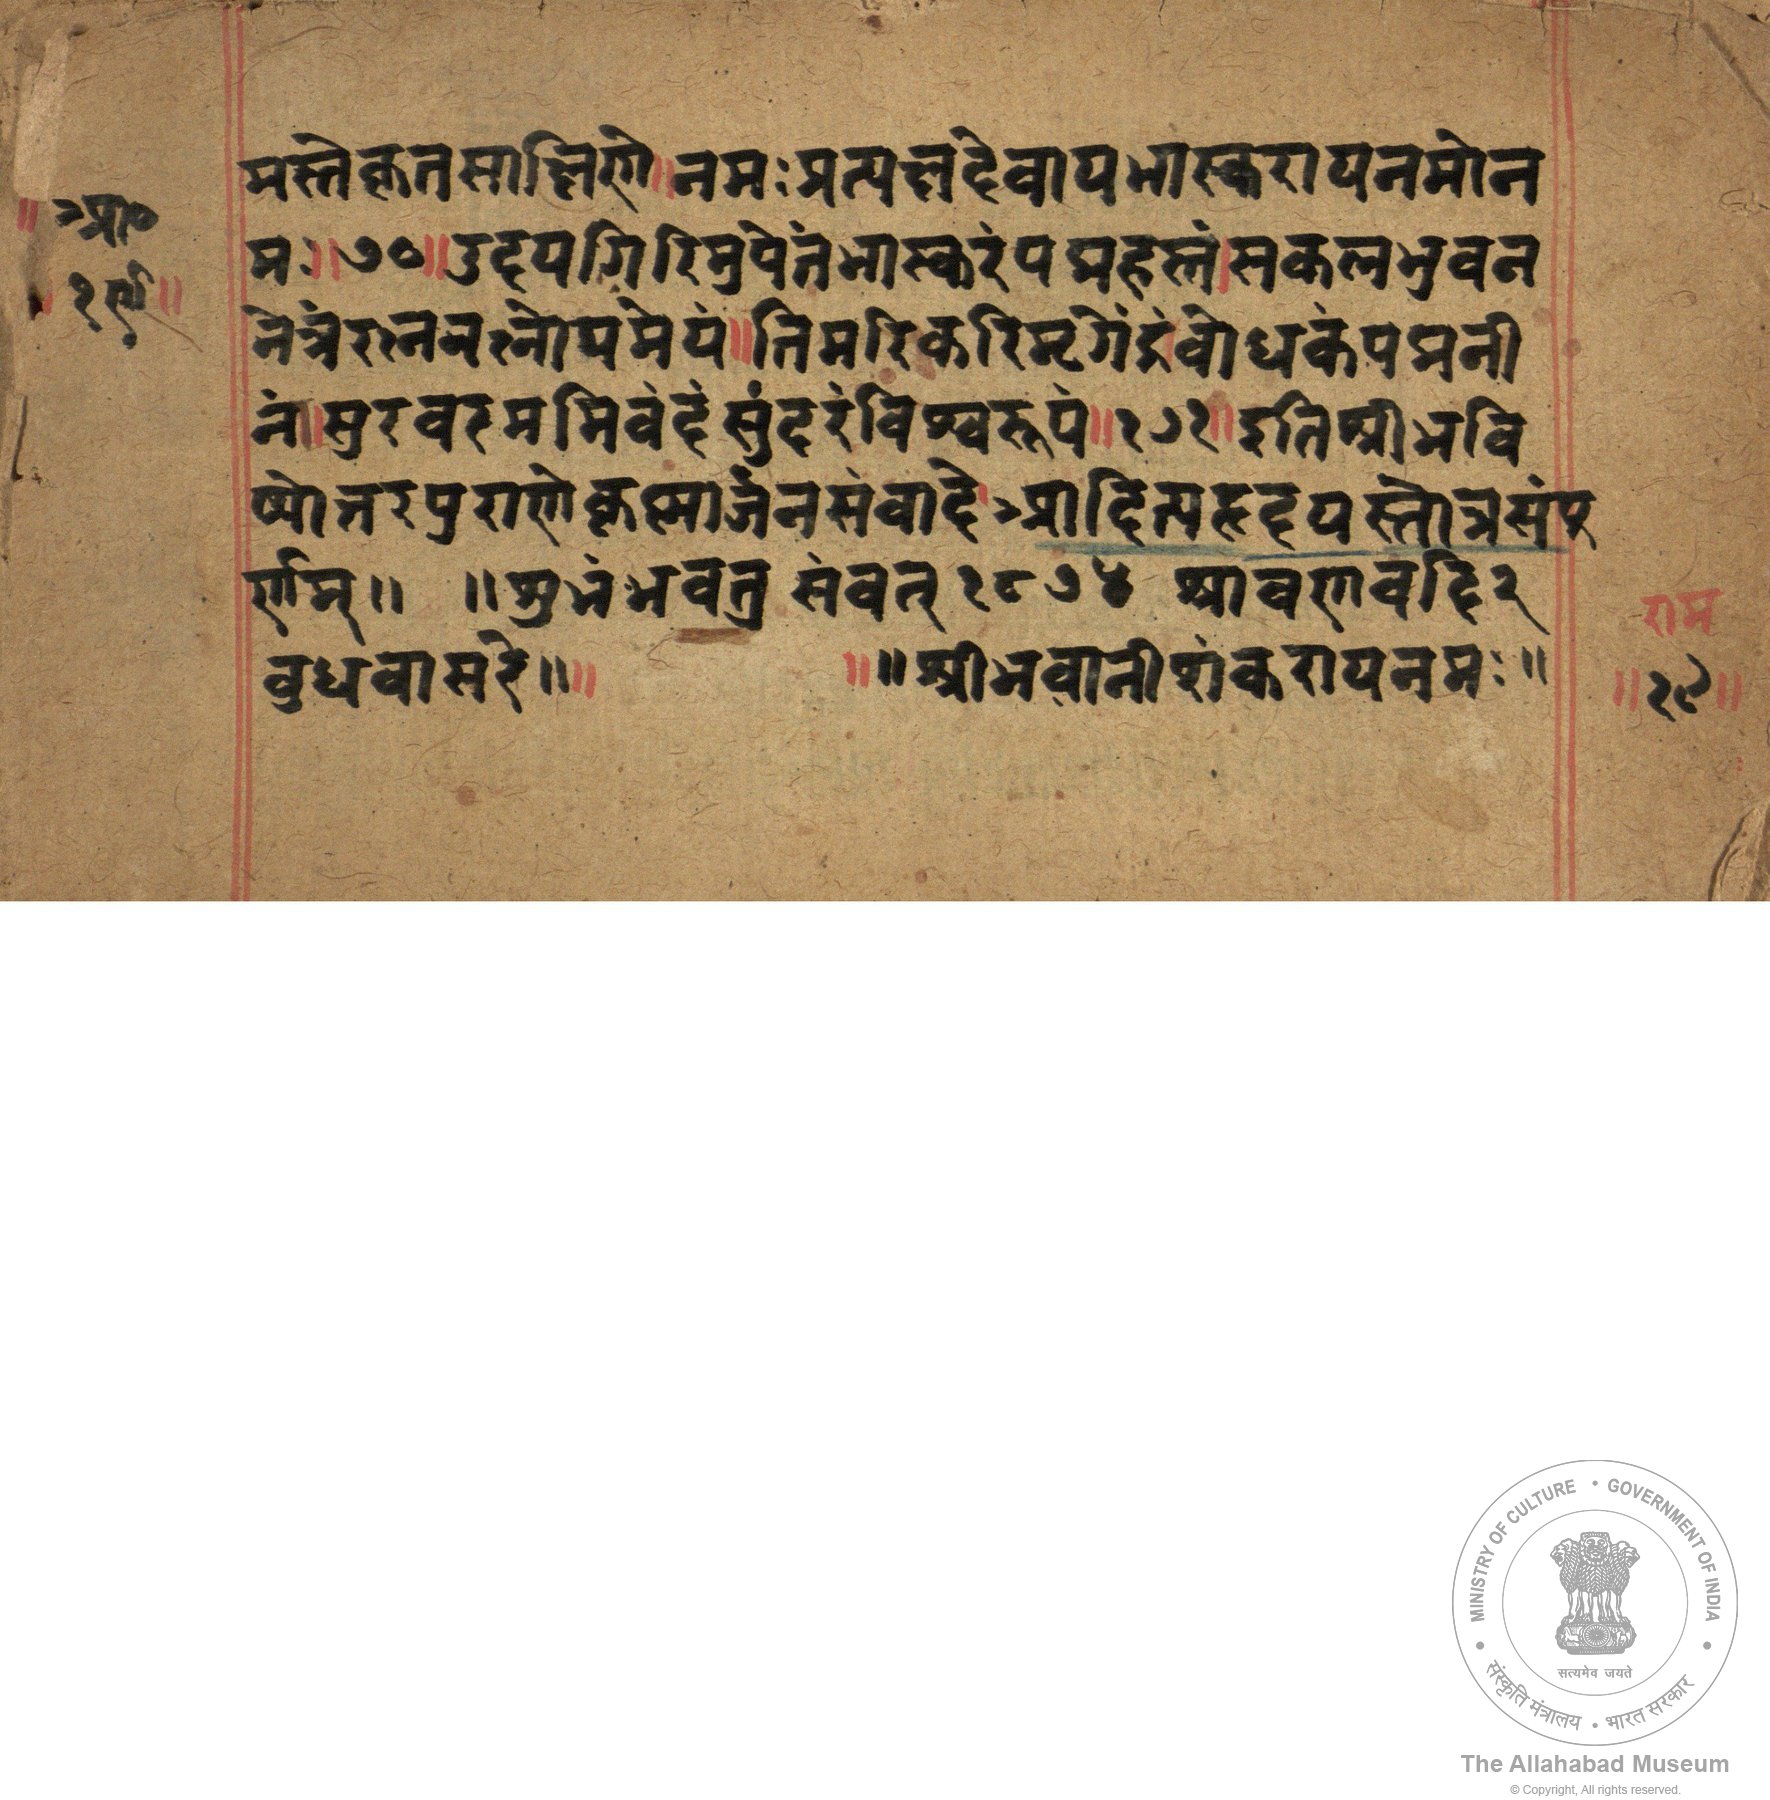 ॥आ०
१९॥
मस्तेकृतसाक्षिणे॥नमःप्रत्यक्षदेवायभास्करायनमोन
मः॥७०॥उदयगिरिमुपेतंभास्करंपद्महस्तं।सकलभुवन
नेत्रंरत्नरत्नोपमेयं॥तिमरिकरिमृगेंद्रंबोधकंपद्मनी
नां।सुरवरमभिवंदेसुंदरंविश्वरूपं॥१७१॥इतिश्रीभवि
ष्योत्तरपुराणेकृष्णार्जुनसंवादे।आदित्यहृदयस्तोत्रसंपू
र्णम्॥ ॥शुभंभवतु संवत् १८७४ श्रावणवदि२
बुधवासरे॥॥ ॥॥श्रीभवानीशंकरायनमः॥
राम
॥१९॥
MINISTRY OF CULTURE • GOVERNMENT OF INDIA
सत्यमेव जयते
संस्कृति मंत्रालय • भारत सरकार
The Allahabad Museum
© Copyright, All rights reserved.